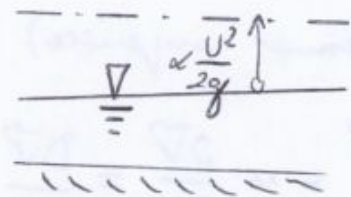 α U²/2g